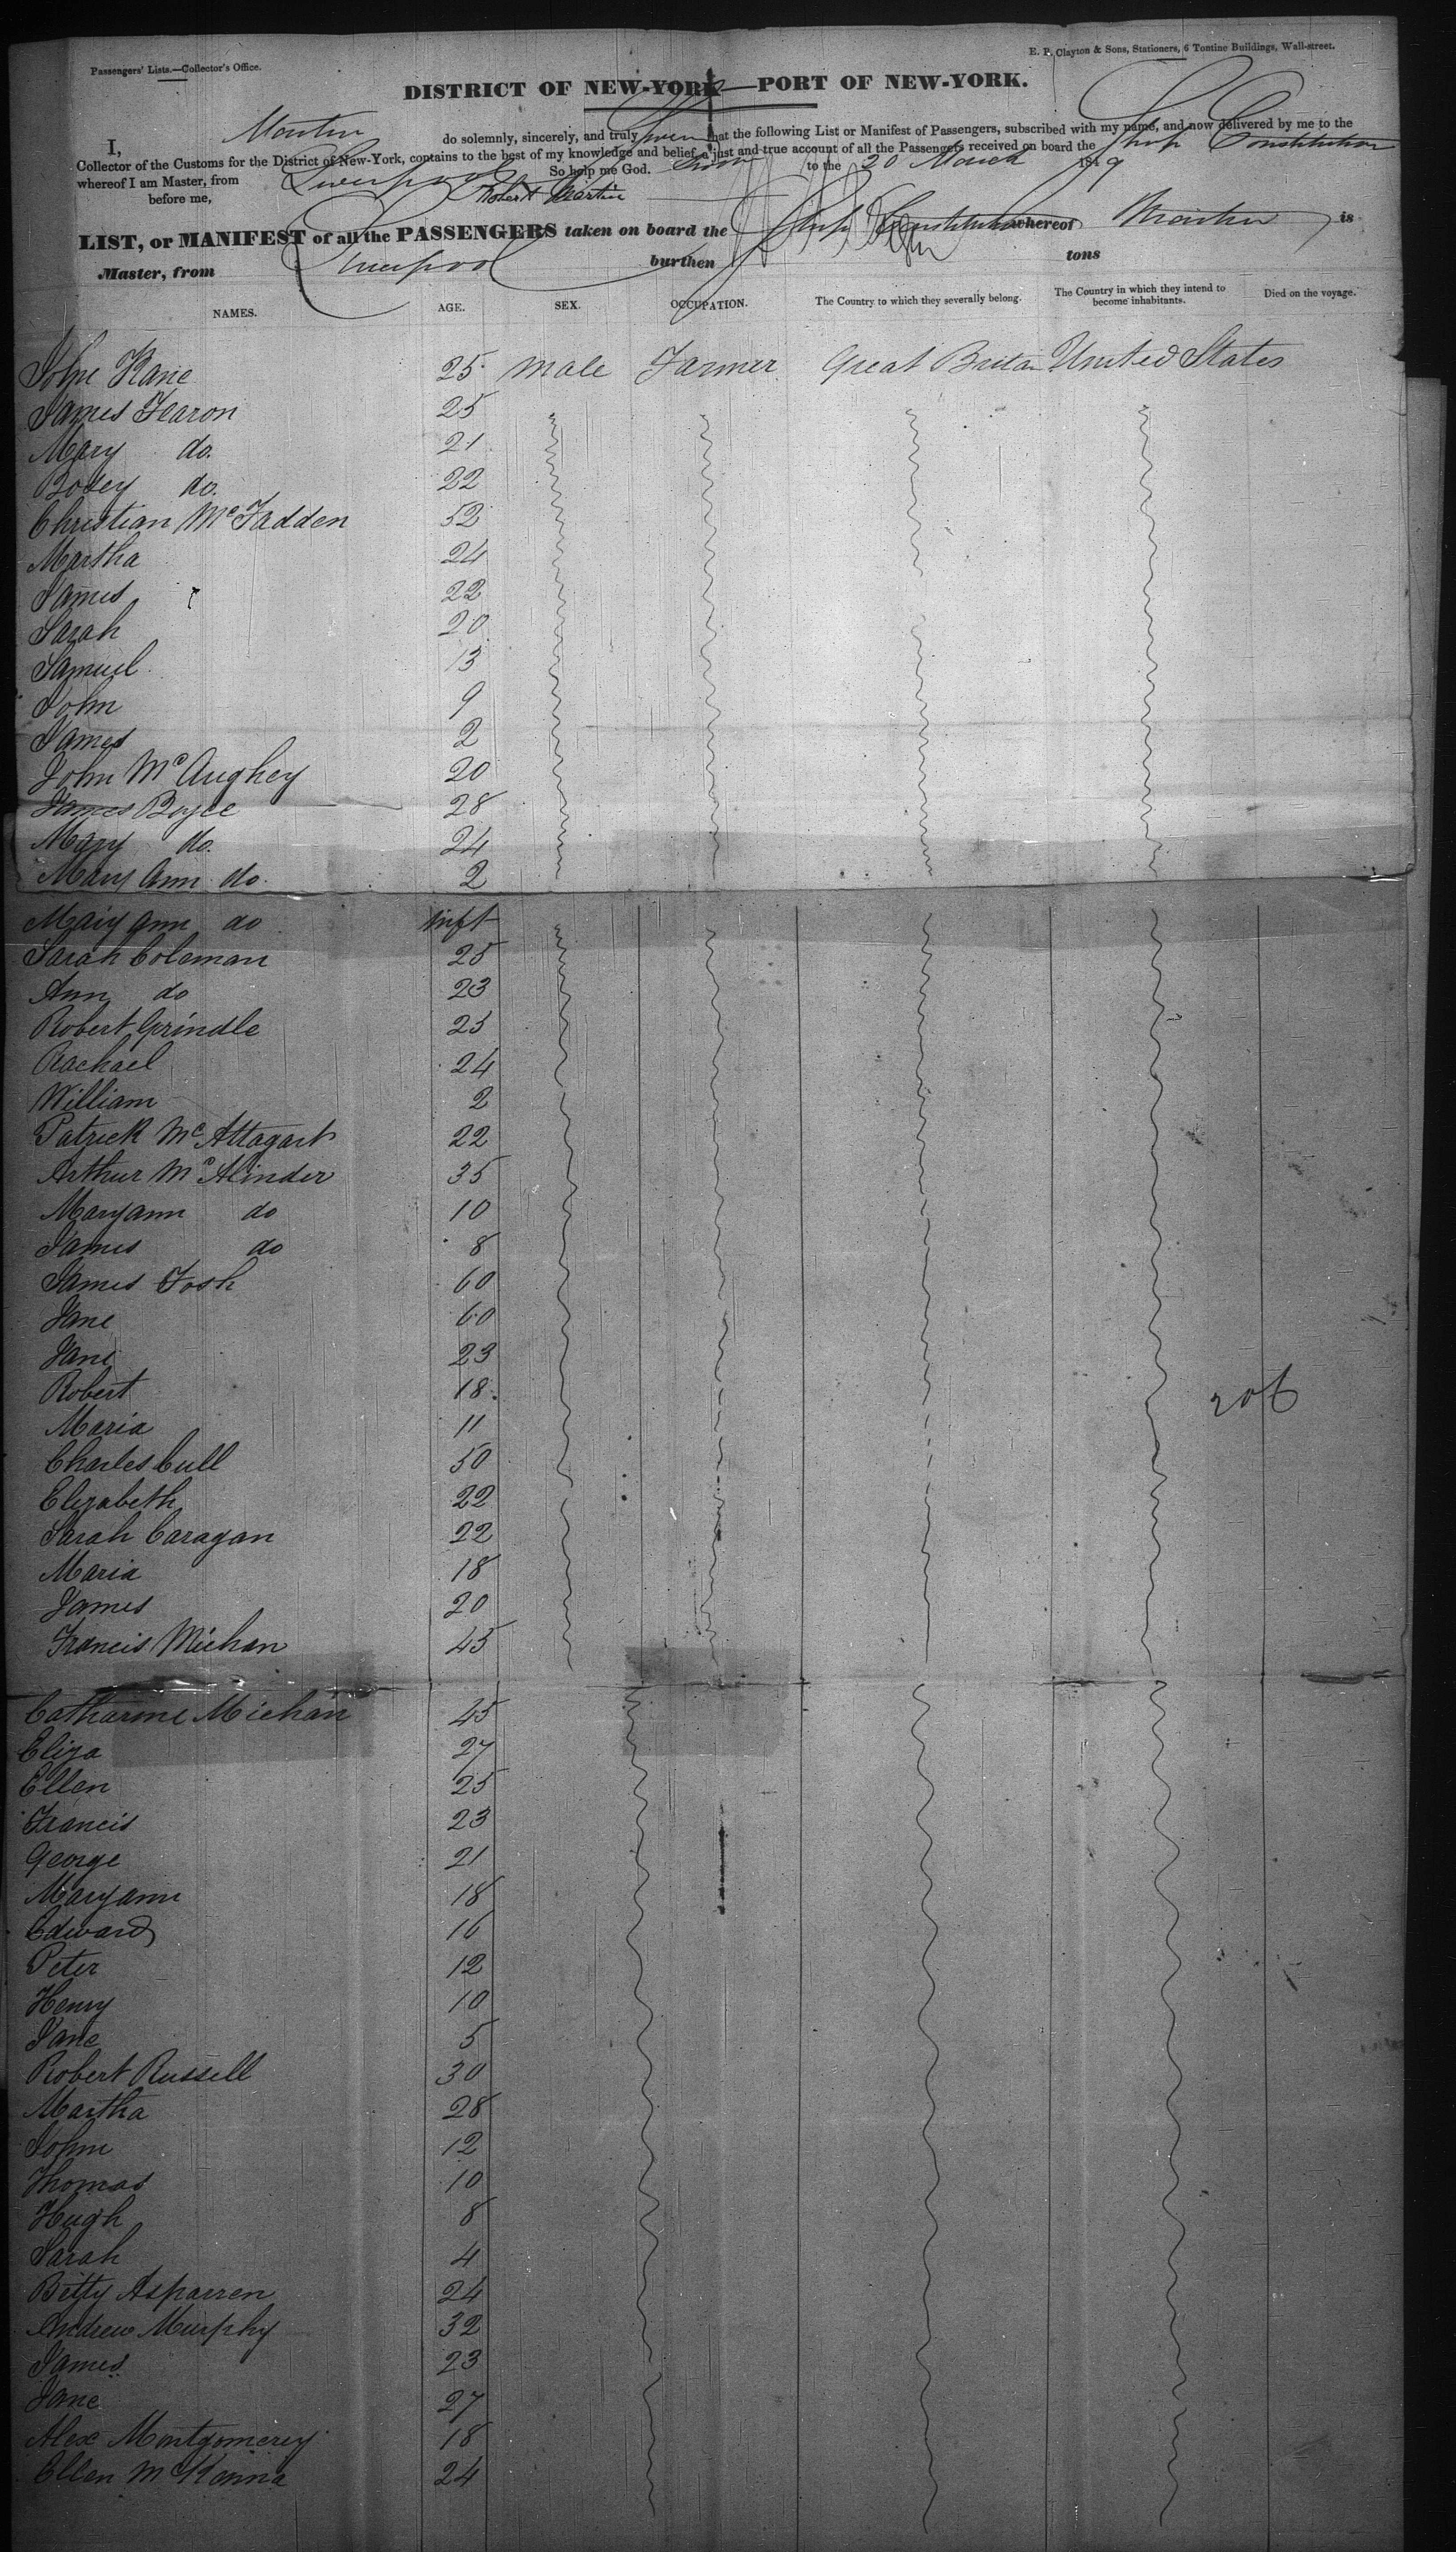 Passengers' Lists.—Collector's Office.
E. P. Clayton & Sons, Stationers, 6 Tontine Buildings, Wall-street.
DISTRICT OF NEW-YORK—PORT OF NEW-YORK.
I, Martin do solemnly, sincerely, and truly swear that the following List or Manifest of Passengers, subscribed with my name, and now delivered by me to the
Collector of the Customs for the District of New-York, contains to the best of my knowledge and belief, a just and true account of all the Passengers received on board the Ship Constitution
whereof I am Master, from Liverpool So help me God.
Sworn to the 20 March 1849
before me, Robert Martin
LIST, or MANIFEST of all the PASSENGERS taken on board the Ship Constitution whereof Martin is
Master, from Liverpool burthen tons
NAMES. AGE. SEX. OCCUPATION. The Country to which they severally belong. The Country in which they intend to become inhabitants. Died on the voyage.
John Kane 25 male Farmer Great Britan United States
James Fearon 25
Mary do. 21
do. 22
Christian McFadden 52
Martha 24
James 22
Sarah 20
Samuel 13
John 9
James 2
John McAughey 20
James Boyce 28
Mary do. 24
Mary Ann do. 2
Mary Ann do inft
Sarah Coleman 25
Ann do 23
Robert Grindle 25
Rachael 24
William 2
Patrick McAttagart 22
Arthur McAlinder 35
Maryann do 10
James do 8
James Fosh 60
Jane 60
Jane 23
Robert 18
Maria 11
Charles Cull 50
Elizabeth 22
Sarah Caragan 22
Maria 18
James 20
Francis Miehan 45
206
Catharine Miehan 45
Eliza 27
Ellen 25
Francis 23
George 21
Maryann 18
Edward 16
Peter 12
Henry 10
Jane 5
Robert Russell 30
Martha 28
John 12
Thomas 10
Hugh 8
Sarah 4
Betty Asparren 24
Andrew Murphy 32
James 23
Jane 27
Alex Montgomery 18
Ellen McKenna 24